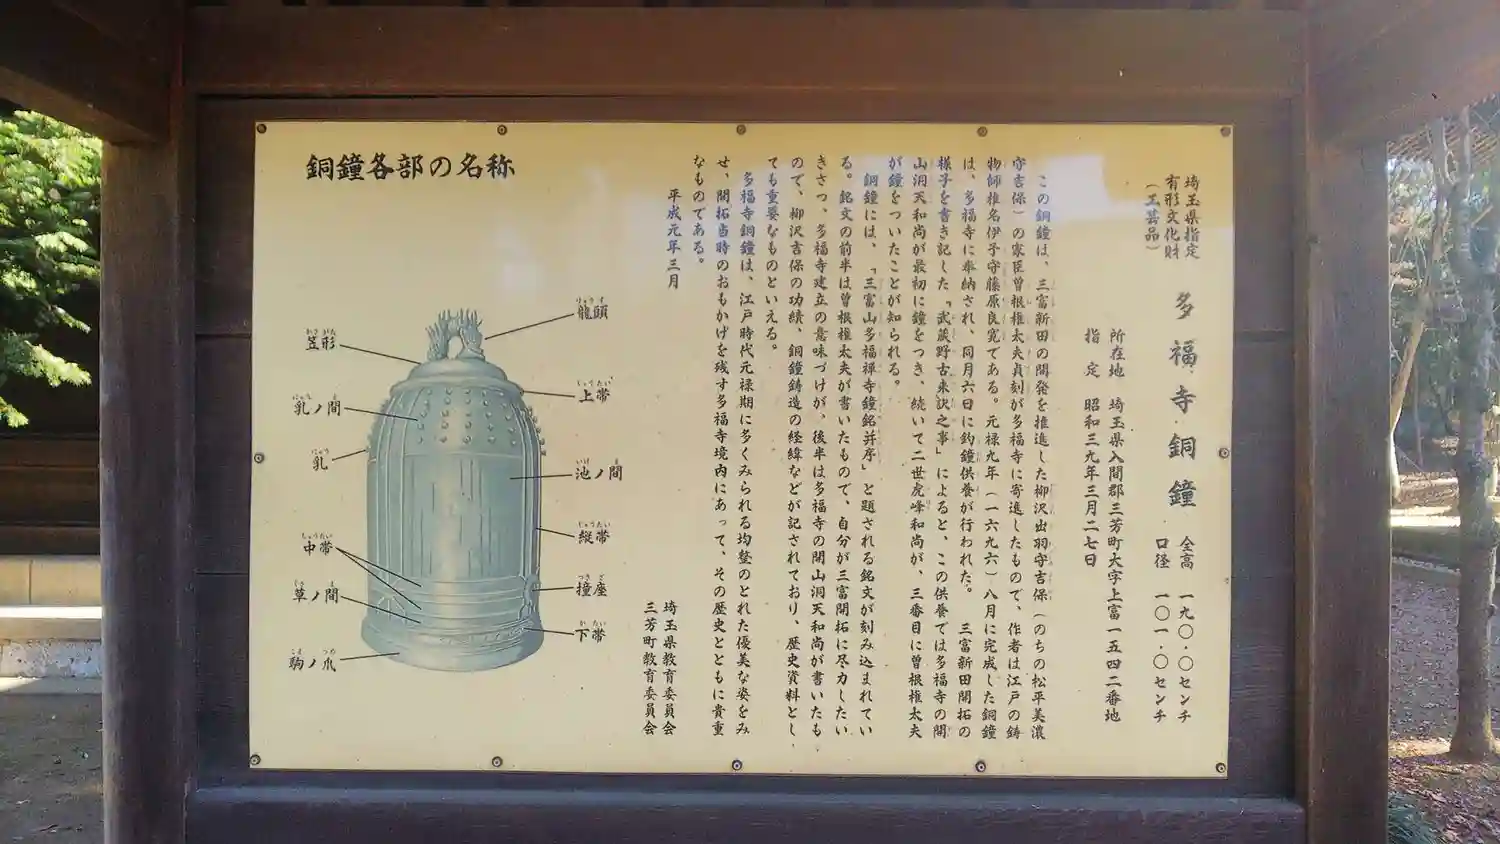 埼玉県指定
有形文化財
(工芸品)
多福寺銅鐘
全高 一九〇・〇センチ
口径 一〇一・〇センチ
所在地 埼玉県入間郡三芳町大字上富一五四二番地
指定 昭和三九年三月二七日
この銅鐘は、三富新田の開発を推進した柳沢出羽守吉保(のちの松平美濃
守吉保)の家臣曽根権太夫貞刻が多福寺に寄進したもので、作者は江戸の鋳
物師椎名伊予守藤原良寛である。元禄九年(一六九六)八月に完成した銅鐘
は、多福寺に奉納され、同月六日に釣鐘供養が行われた。 三富新田開拓の
様子を書き記した『武蔵野古来訳之事』によると、この供養では多福寺の開
山洞天和尚が最初に鐘をつき、続いて二世虎峰和尚が、三番目に曽根権太夫
が鐘をついたことが知られる。
銅鐘には、「三富山多福禅寺鐘銘并序」と題される銘文が刻み込まれてい
る。銘文の前半は曽根権太夫が書いたもので、自分が三富開拓に尽力したい
きさつ、多福寺建立の意味づけが、後半は多福寺の開山洞天和尚が書いたも
ので、柳沢吉保の功績、銅鐘鋳造の経緯などが記されており、歴史資料とし
ても重要なものといえる。
多福寺銅鐘は、江戸時代元禄期に多くみられる均整のとれた優美な姿をみ
せ、開拓当時のおもかげを残す多福寺境内にあって、その歴史とともに貴重
なものである。
平成元年三月
埼玉県教育委員会
三芳町教育委員会
銅鐘各部の名称
龍頭
笠形
上帯
乳ノ間
乳
池ノ間
縦帯
中帯
撞座
草ノ間
下帯
駒ノ爪